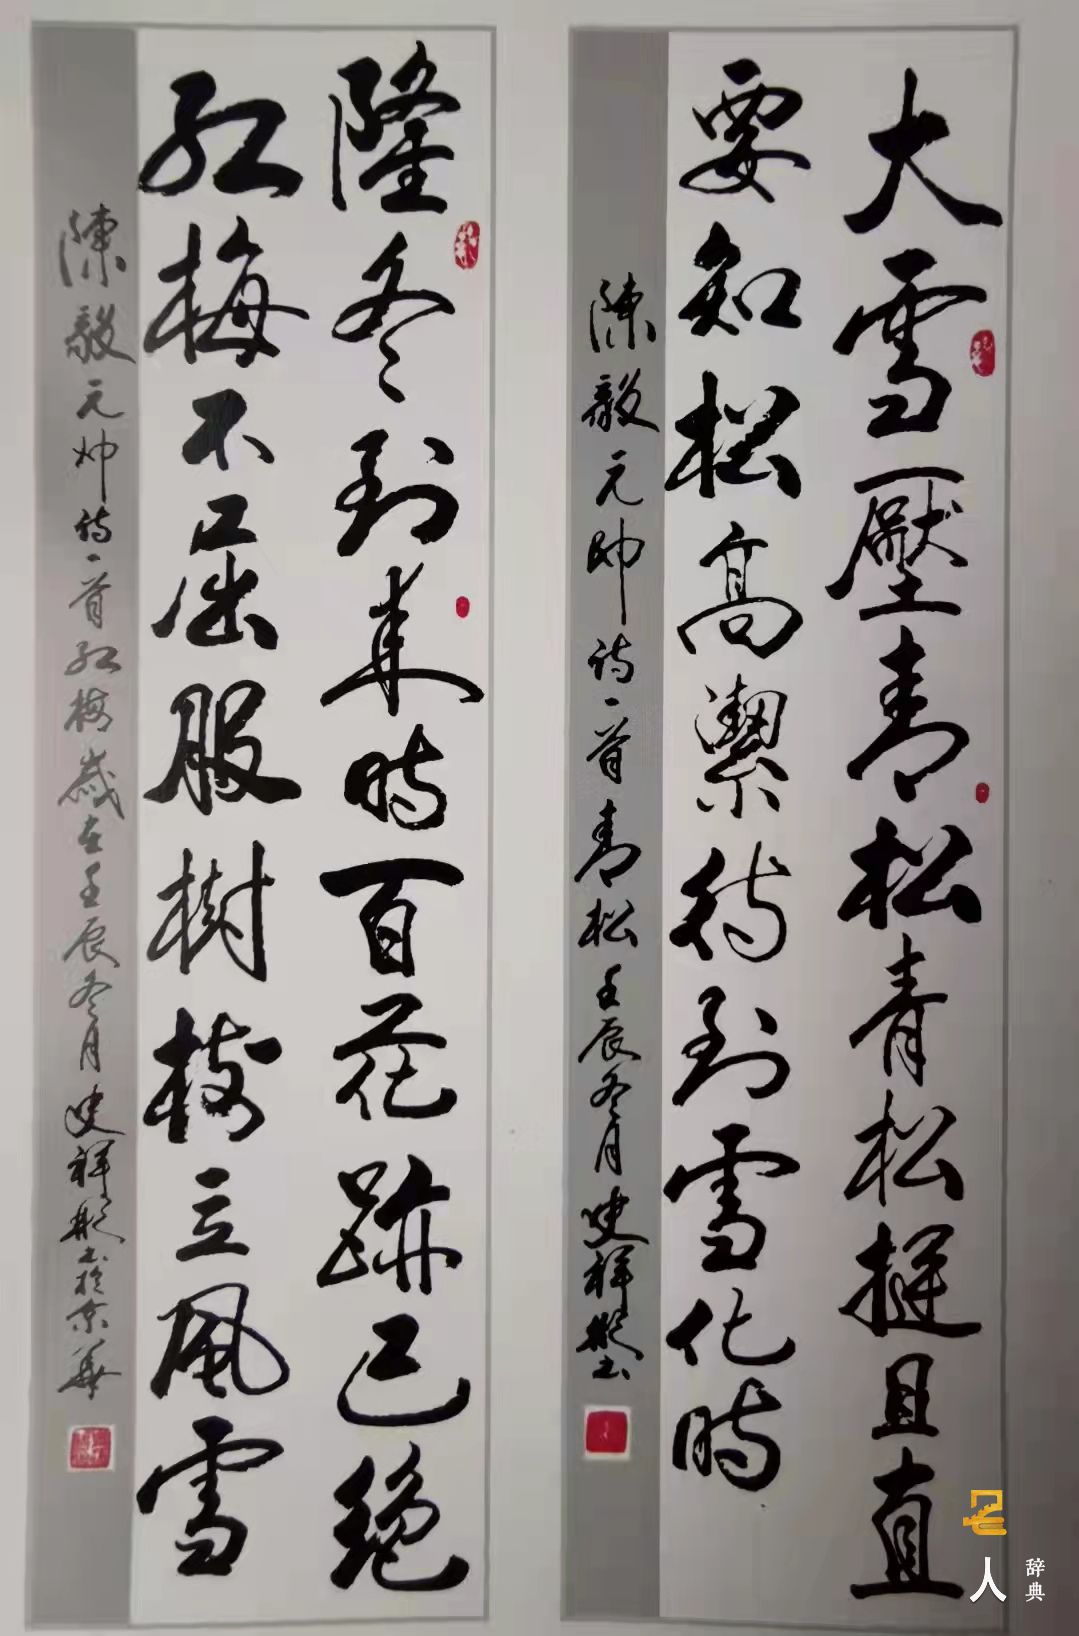 大雪壓青松青松挺且直
要知松高潔待到雪化時
陳毅元帥诗一首青松壬辰冬月史祥彬書
隆冬到来時百花跡已絕
红梅不屈服樹樹立風雪
陳毅元帥诗一首红梅歲在壬辰冬月史祥彬書於京華
名人
辞典